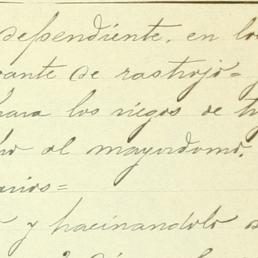 dependiente. en lo
ante de rastrojo=
para los riegos de t
ho al mayordomo.
arios=
y hacinandolo a